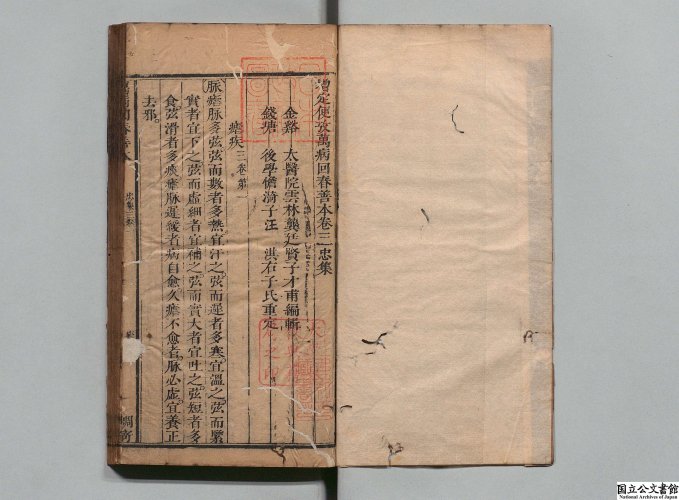 增定便攷萬病回春善本卷三 忠集
金谿 太醫院雲林龔廷賢子才甫編輯
錢塘 後學憺漪子汪 淇右子氏重定
瘧疾 三卷第一
脈 瘧脈多弦弦而數者多熱宜汗之弦而遲者多寒宜溫之弦而緊
實者宜下之弦而虛細者宜補之弦而實大者宜吐之弦短者多
食弦滑者多痰瘧脈遲緩者病自愈久瘧不愈者脈必虛宜養正
去邪
忠集三卷
国立公文書館
National Archives of Japan